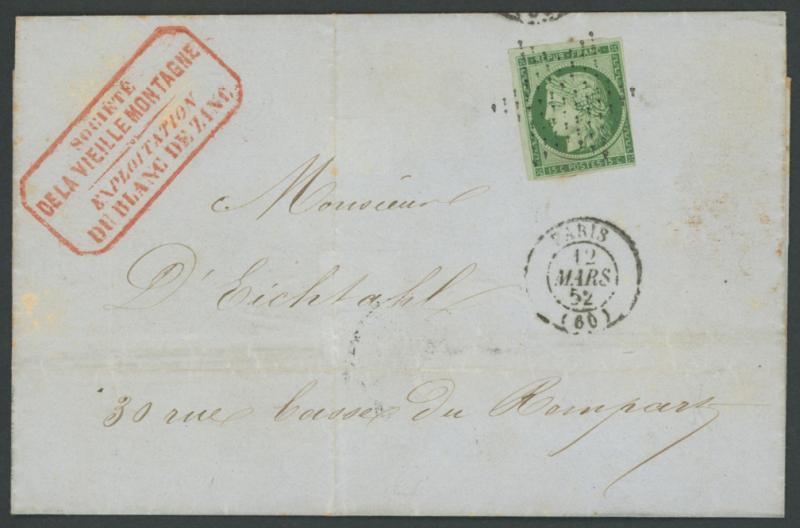 SOCIÉTÉ
DE LA VIEILLE MONTAGNE
EXPLOITATION
DU BLANC DE ZINC
REPUB. FRANC.
15 C. POSTES 15 C.
Monsieur
PARIS
12
MARS
52
(60)
D'Eichtahl
30 rue basse du Rempart